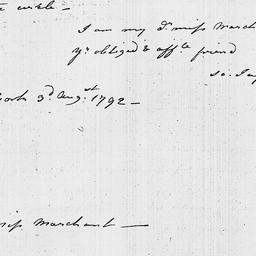 I am my Dr. Miss March
yr. obliged & affte. friend
Sa. Jay
York 3d. Augst. 1792 —
Miss Marchant —